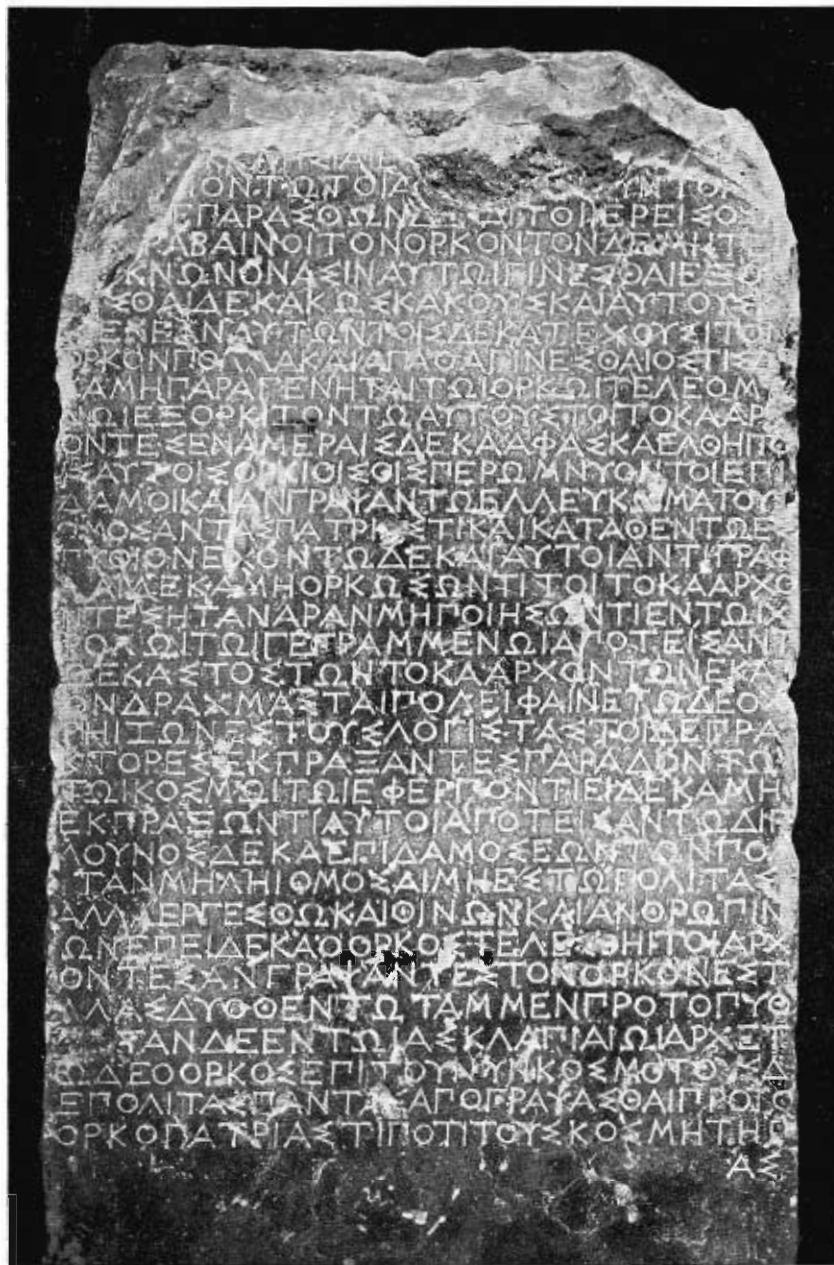 ΟΝΤΩΤΟΙΑ
ΕΠΑΡΑΣΘΩΝΔΕΚΑΙΤΟΙΙΕΡΕΙΣΟΣ
ΡΑΒΑΙΝΟΙΤΟΝΟΡΚΟΝΤΟΝΔΕΜΗΤΕ
ΚΝΩΝΟΝΑΣΙΝΑΥΤΩΙΓΙΝΕΣΘΑΙΕΞΟ
ΣΘΑΙΔΕΚΑΚΩΣΚΑΚΟΥΣΚΑΙΑΥΤΟΥΣ
ΕΞΕΞΑΥΤΩΝΤΟΙΣΔΕΚΑΤΕΧΟΥΣΙΤΟΝ
ΟΡΚΟΝΠΟΛΛΑΚΑΙΑΓΑΘΑΓΙΝΕΣΘΑΙΟΣΤΙΣΔ
ΚΑΜΗΠΑΡΑΓΕΝΗΤΑΙΤΩΙΟΡΚΩΙΤΕΛΕΟΜ
ΝΩΙΕΞΟΡΚΙΤΟΝΤΩΑΥΤΟΥΣΤΟΙΤΟΚΑΑΡΧ
ΟΝΤΕΣΕΝΑΜΕΡΑΙΣΔΕΚΑΑΦΑΣΚΑΕΛΘΗΠΟ
ΤΑΥΤΟΙΣΟΡΚΙΟΙΣΟΙΣΠΕΡΩΜΝΥΟΝΤΟΙΕΠΙ
ΔΑΜΟΙΚΑΙΑΝΓΡΑΨΑΝΤΩΕΛΛΕΥΚΩΜΑΤΟΥΣ
ΟΜΟΣΑΝΤΑΣΠΑΤΡΙΑΣΤΙΚΑΙΚΑΤΑΘΕΝΤΩΕ
ΠΥΘΙΟΝΕΧΟΝΤΩΔΕΚΑΙΑΥΤΟΙΑΝΤΙΓΡΑΦ
ΑΑΙΔΕΚΑΜΗΟΡΚΩΣΩΝΤΙΤΟΙΤΟΚΑΑΡΧΟ
ΝΤΕΣΗΤΑΝΑΡΑΝΜΗΠΟΙΗΣΩΝΤΙΕΝΤΩΙΧ
ΡΟΝΩΙΤΩΙΓΕΓΡΑΜΜΕΝΩΙΑΠΟΤΕΙΣΑΝΤ
ΩΕΚΑΣΤΟΣΤΩΝΤΟΚΑΑΡΧΟΝΤΩΝΕΚΑΤ
ΟΝΔΡΑΧΜΑΣΤΑΙΠΟΛΕΙΦΑΙΝΕΤΩΔΕΟ
ΧΡΗΙΖΩΝΕΣΤΟΥΣΛΟΓΙΣΤΑΣΤΟΙΔΕΠΡΑ
ΚΤΟΡΕΣΕΚΠΡΑΞΑΝΤΕΣΠΑΡΑΔΟΝΤΩ
ΤΩΙΚΟΣΜΩΙΤΩΙΕΦΕΡΠΟΝΤΙΕΙΔΕΚΑΜΗ
ΕΚΠΡΑΞΩΝΤΙΑΥΤΟΙΑΠΟΤΕΙΣΑΝΤΩΔΙΠ
ΛΟΥΝΟΣΔΕΚΑΕΠΙΔΑΜΟΣΕΩΝΤΩΝΠΟ
ΛΙΤΑΝΜΗΛΗΙΟΜΟΣΑΙΜΗΕΣΤΩΠΟΛΙΤΑΣ
ΑΛΛΑΕΡΓΕΣΘΩΚΑΙΘΙΝΩΝΚΑΙΑΝΘΡΩΠΙΝ
ΩΝΕΠΕΙΔΕΚΑΟΟΡΚΟΣΤΕΛΕΣΘΗΙΤΟΙΑΡΧ
ΟΝΤΕΣΑΝΓΡΑΨΑΝΤΕΣΤΟΝΟΡΚΟΝΕΣΤ
ΑΛΛΑΣΔΥΟΘΕΝΤΩΤΑΜΜΕΝΠΡΟΤΟΠΥΘ
ΤΑΝΔΕΕΝΤΩΙΑΣΚΛΑΠΙΑΙΩΙΑΡΧΕΤ
ΩΔΕΟΟΡΚΟΣΕΠΙΤΟΥΝΥΝΚΟΣΜΟΤΟΥΣΔ
ΕΠΟΛΙΤΑΣΠΑΝΤΑΣΑΠΟΓΡΑΨΑΣΘΑΙΠΡΟΤΟ
ΟΡΚΟΠΑΤΡΙΑΣΤΙΠΟΤΙΤΟΥΣΚΟΣΜΗΤΗΡ
Α